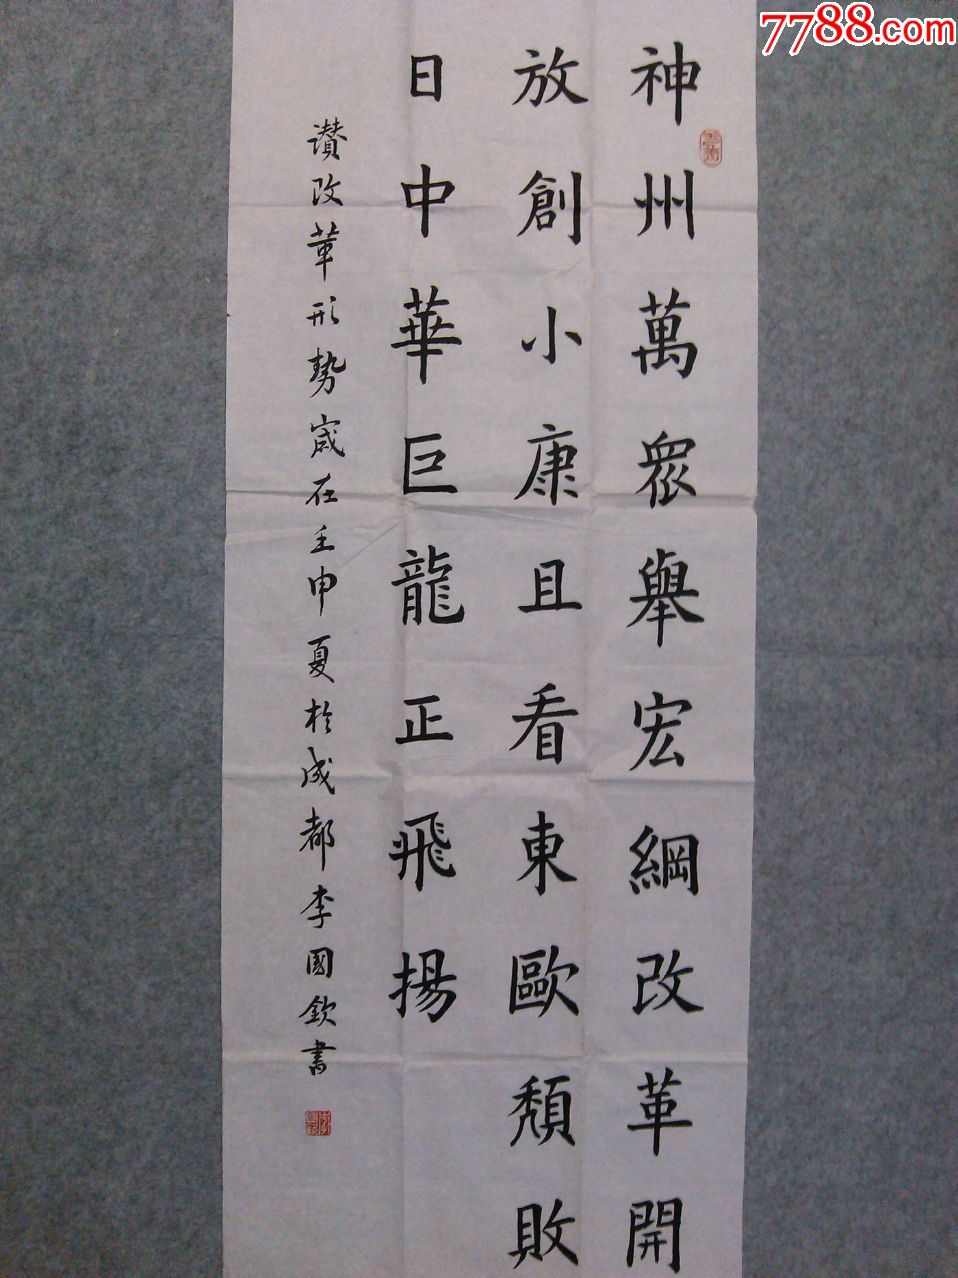 神州萬眾舉宏綱改革開
放創小康且看東歐頹敗
日中華巨龍正飛揚
讚改革形勢歲在壬申夏於成都李國欽書
7788.com